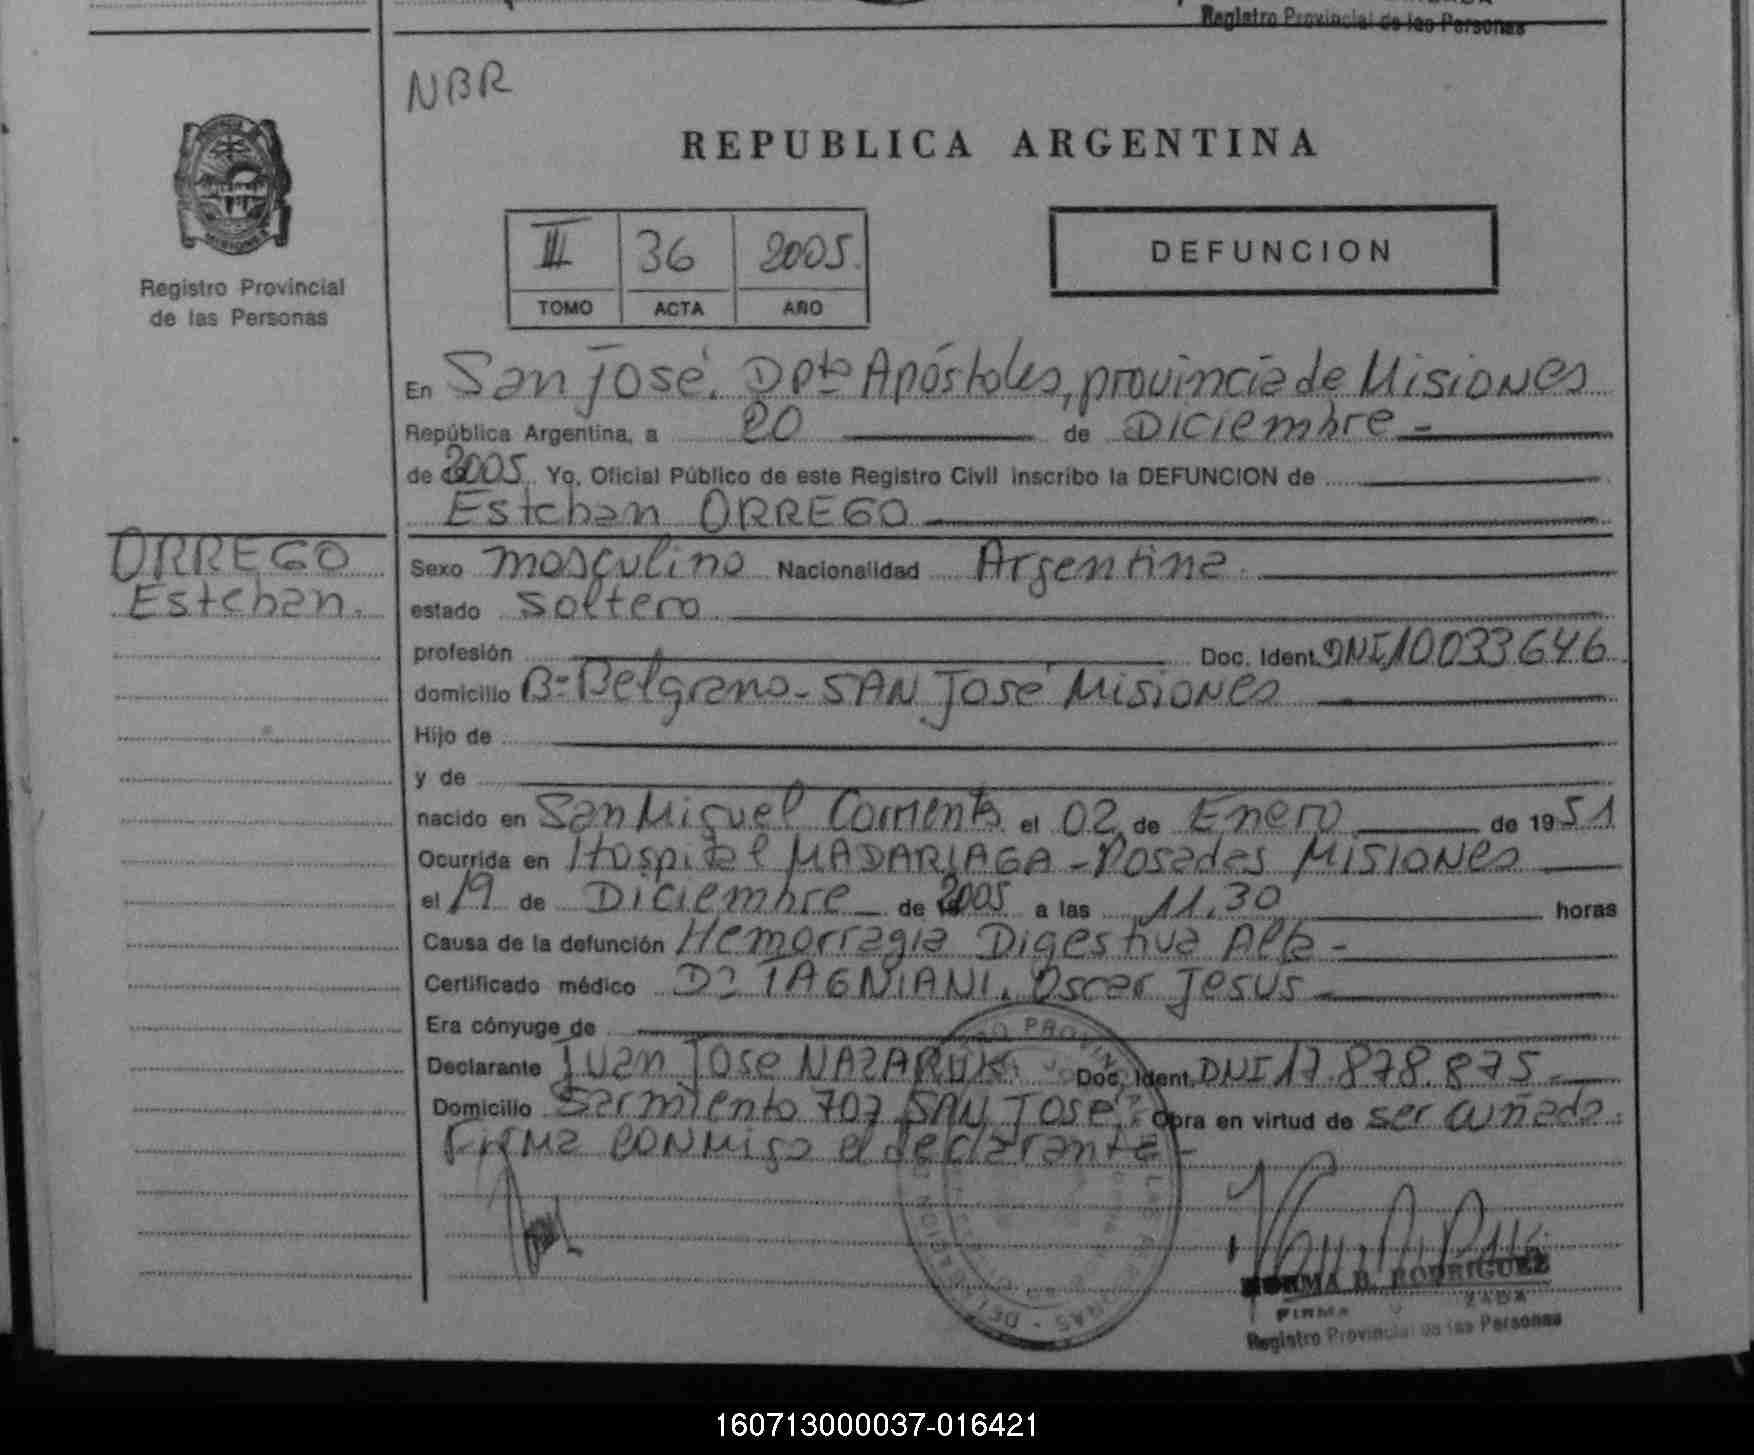 Registro Provincial de las Personas
NBR
REPUBLICA ARGENTINA
MISIONES
Registro Provincial
de las Personas
III 36 2005
TOMO ACTA AÑO
DEFUNCION
En San José. Dpto Apóstoles, provincia de Misiones
República Argentina, a 20 de Diciembre -
de 2005 Yo, Oficial Público de este Registro Civil inscribo la DEFUNCION de
Esteban ORREGO
ORREGO
Esteban.
Sexo masculino Nacionalidad Argentina.
estado soltero
profesión Doc. Ident. DNI 10033646
domicilio Bº Belgrano - SAN José Misiones
Hijo de
y de
nacido en San Miguel Corrientes el 02 de Enero de 1951
Ocurrida en Hospital MADARIAGA - Posadas Misiones
el 19 de Diciembre de 2005 a las 11,30 horas
Causa de la defunción Hemorragia Digestiva Alta -
Certificado médico Dr TAGNIANI, Oscar Jesus
Era cónyuge de
Declarante Juan Jose NAZARUK Doc. Ident. DNI 17.878.875 -
Domicilio Sarmiento 707 SAN José. Obra en virtud de ser cuñado.
Firma conmigo el declarante -
NORMA B. RODRIGUEZ
FIRMA
Registro Provincial de las Personas
160713000037-016421